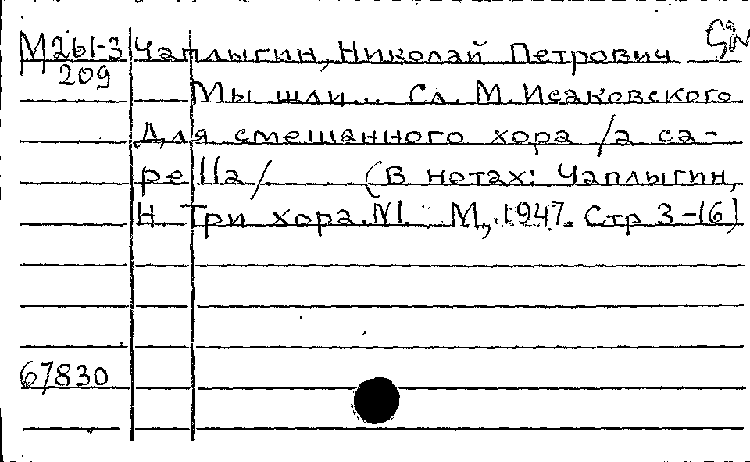 М261-3 Чаплыгин, Николай Петрович
209
Мы шли... Сл. М. Исаковского
Для смешанного хора /a ca-
pella/ (В нотах: Чаплыгин,
Н. Три хора. №1. М., 1947. Стр 3-16)
67830